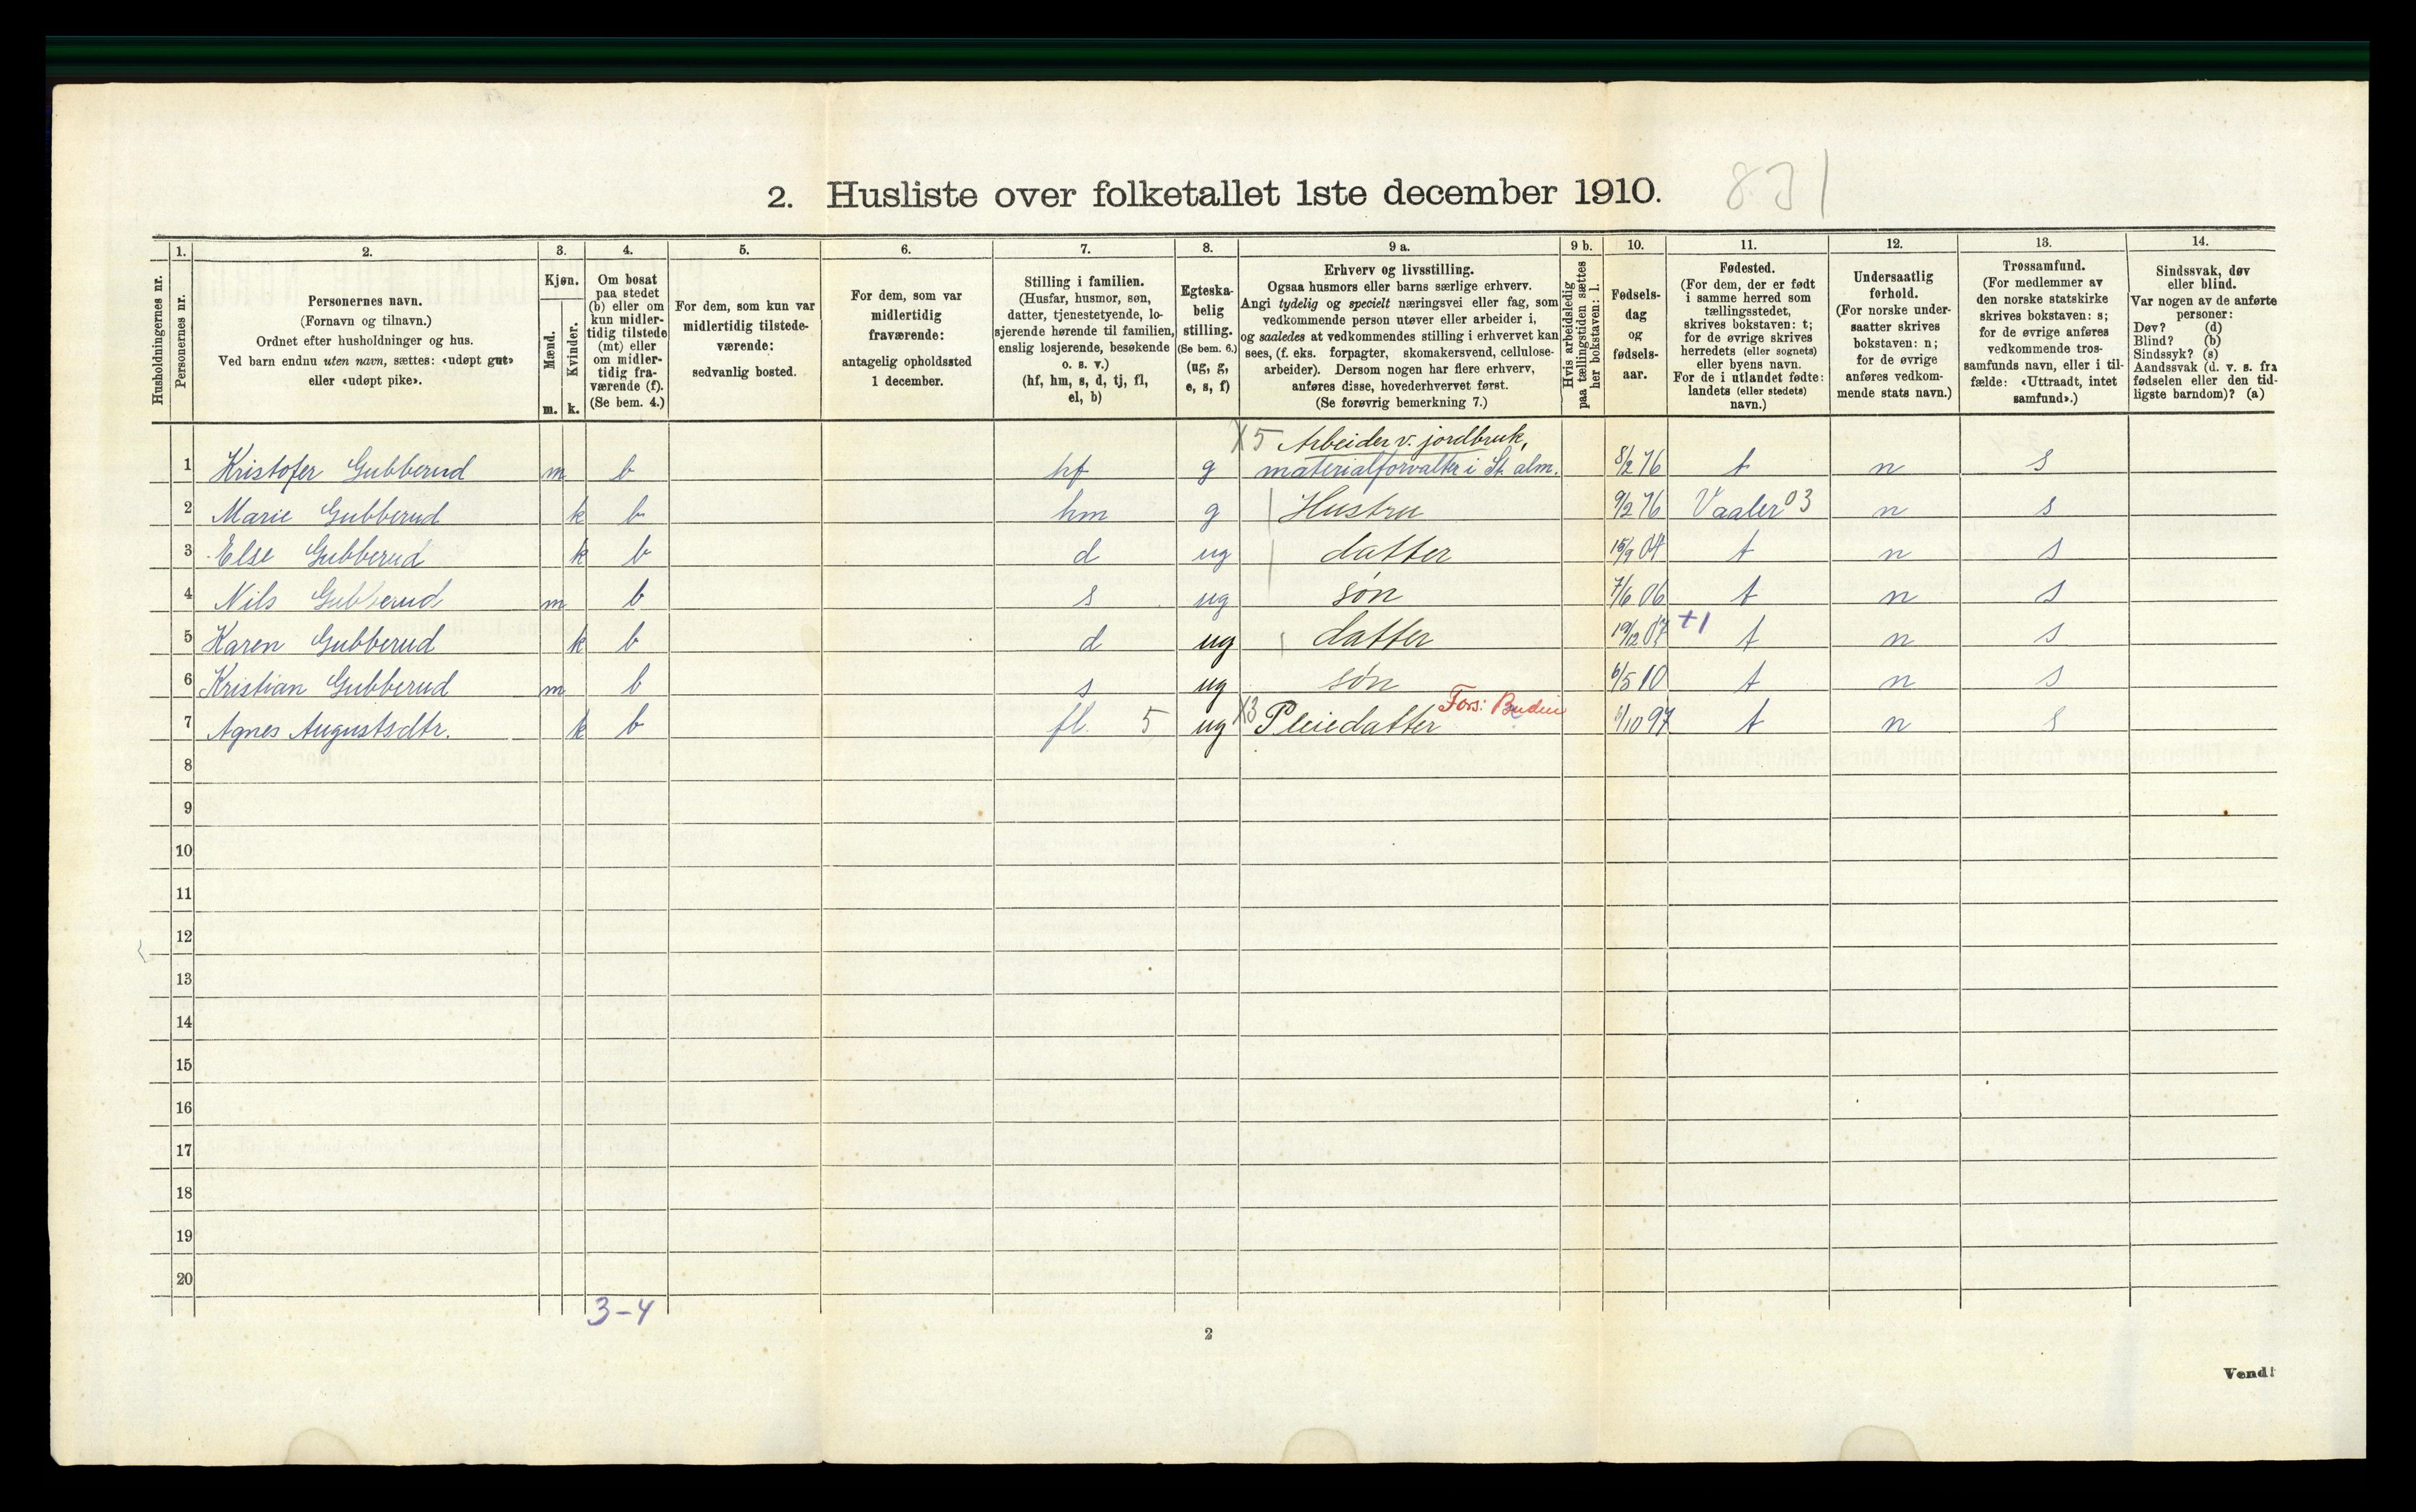 2. Husliste over folketallet 1ste december 1910. 831
1. 2. 3. 4. 5. 6. 7. 8. 9 a. 9 b. 10. 11. 12. 13. 14.
Husholdningernes nr.
Personernes nr.
Personernes navn.
(Fornavn og tilnavn.)
Ordnet efter husholdninger og hus.
Ved barn endnu uten navn, sættes: «udøpt gut»
eller «udøpt pike».
Kjøn.
Mænd.
Kvinder.
m. k.
Om bosat
paa stedet
(b) eller om
kun midler-
tidig tilstede
(mt) eller
om midler-
tidig fra-
værende (f).
(Se bem. 4.)
For dem, som kun var
midlertidig tilstede-
værende:
sedvanlig bosted.
For dem, som var
midlertidig
fraværende:
antagelig opholdssted
1 december.
Stilling i familien.
(Husfar, husmor, søn,
datter, tjenestetyende, lo-
sjerende hørende til familien,
enslig losjerende, besøkende
o. s. v.)
(hf, hm, s, d, tj, fl,
el, b)
Egteska-
belig
stilling.
(Se bem. 6.)
(ug, g,
e, s, f)
Erhverv og livsstilling.
Ogsaa husmors eller barns særlige erhverv.
Angi tydelig og specielt næringsvei eller fag, som
vedkommende person utøver eller arbeider i,
og saaledes at vedkommendes stilling i erhvervet kan
sees, (f. eks. forpagter, skomakersvend, cellulose-
arbeider). Dersom nogen har flere erhverv,
anføres disse, hovederhvervet først.
(Se forøvrig bemerkning 7.)
Hvis arbeidsledig
paa tællingstiden sættes
her bokstaven: l.
Fødsels-
dag
og
fødsels-
aar.
Fødested.
(For dem, der er født
i samme herred som
tællingsstedet,
skrives bokstaven: t;
for de øvrige skrives
herredets (eller sognets)
eller byens navn.
For de i utlandet fødte:
landets (eller stedets)
navn.)
Undersaatlig
forhold.
(For norske under-
saatter skrives
bokstaven: n;
for de øvrige
anføres vedkom-
mende stats navn.)
Trossamfund.
(For medlemmer av
den norske statskirke
skrives bokstaven: s;
for de øvrige anføres
vedkommende tros-
samfunds navn, eller i til-
fælde: «Uttraadt, intet
samfund».)
Sindssvak, døv
eller blind.
Var nogen av de anførte
personer:
Døv? (d)
Blind? (b)
Sindssyk? (s)
Aandssvak (d. v. s. fra
fødselen eller den tid-
ligste barndom)? (a)
X5 Arbeider v. jordbruk,
1 Kristofer Gubberud m b hf g materialforvalter i St. alm. 8/2 76 t n s
2 Marie Gubberud k b hm g Hustru 9/2 76 Vaaler 03 n s
3 Else Gubberud k b d ug datter 15/9 04 t n s
4 Nils Gubberud m b s ug søn 7/6 06 t n s
5 Karen Gubberud k b d ug datter 19/12 07 +1 t n s
6 Kristian Gubberud m b s ug søn 6/5 10 t n s
7 Agnes Augustsdtr. k b fl. 5 ug X3 Pleiedatter Fors: 6/10 97 t n s
8
9
10
11
12
13
14
15
16
17
18
19
20
3-4
2
Vend!